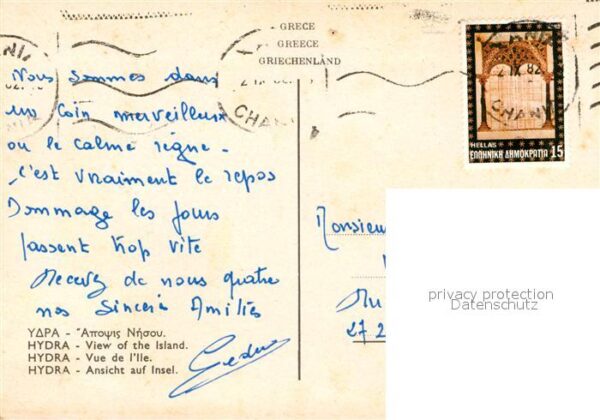 GRECE
GREECE
GRIECHENLAND
CHANIA
2 IX 82
HELLAS
ΕΛΛΗΝΙΚΗ ΔΗΜΟΚΡΑΤΙΑ 15
Nous sommes dans
un coin merveilleux
ou le calme règne -
c'est vraiment le repos
Dommage les jours
passent trop vite
Recevez de nous quatre
nos Sincères Amitiés
Monsieur
27 2
privacy protection
Datenschutz
ΥΔΡΑ - Ἄποψις Νήσου.
HYDRA - View of the Island.
HYDRA - Vue de l'Ile.
HYDRA - Ansicht auf Insel.